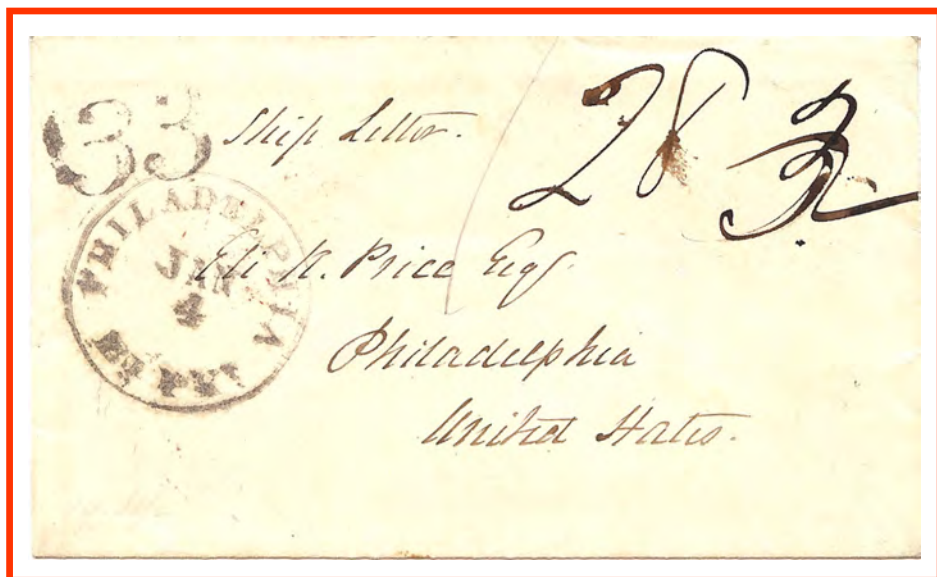 33
Ship Letter.
28
PHILADELPHIA
JAN
4
Eli K. Price Esqr
Philadelphia
United States.